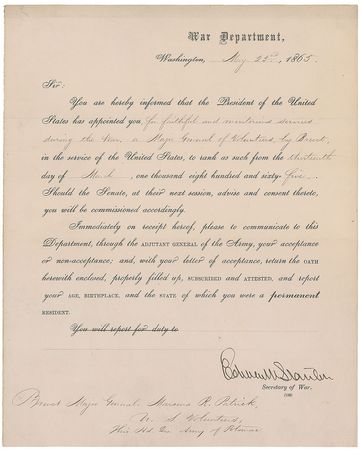 War Department,
Washington, May 23rd, 1865.
Sir:
You are hereby informed that the President of the United
States has appointed you, for faithful and meritorious services
during the War, a Major General of Volunteers, by Brevet,
in the service of the United States, to rank as such from the thirteenth
day of March, one thousand eight hundred and sixty-five.
Should the Senate, at their next session, advise and consent thereto,
you will be commissioned accordingly.
Immediately on receipt hereof, please to communicate to this
Department, through the ADJUTANT GENERAL of the Army, your acceptance
or non-acceptance; and, with your letter of acceptance, return the OATH
herewith enclosed, properly filled up, SUBSCRIBED and ATTESTED, and report
your AGE, BIRTHPLACE, and the STATE of which you were a permanent
RESIDENT.
You will report for duty to
Edwin M Stanton
Secretary of War.
Brevet Major General Marsena R. Patrick,
U. S. Volunteers,
Army of Potomac